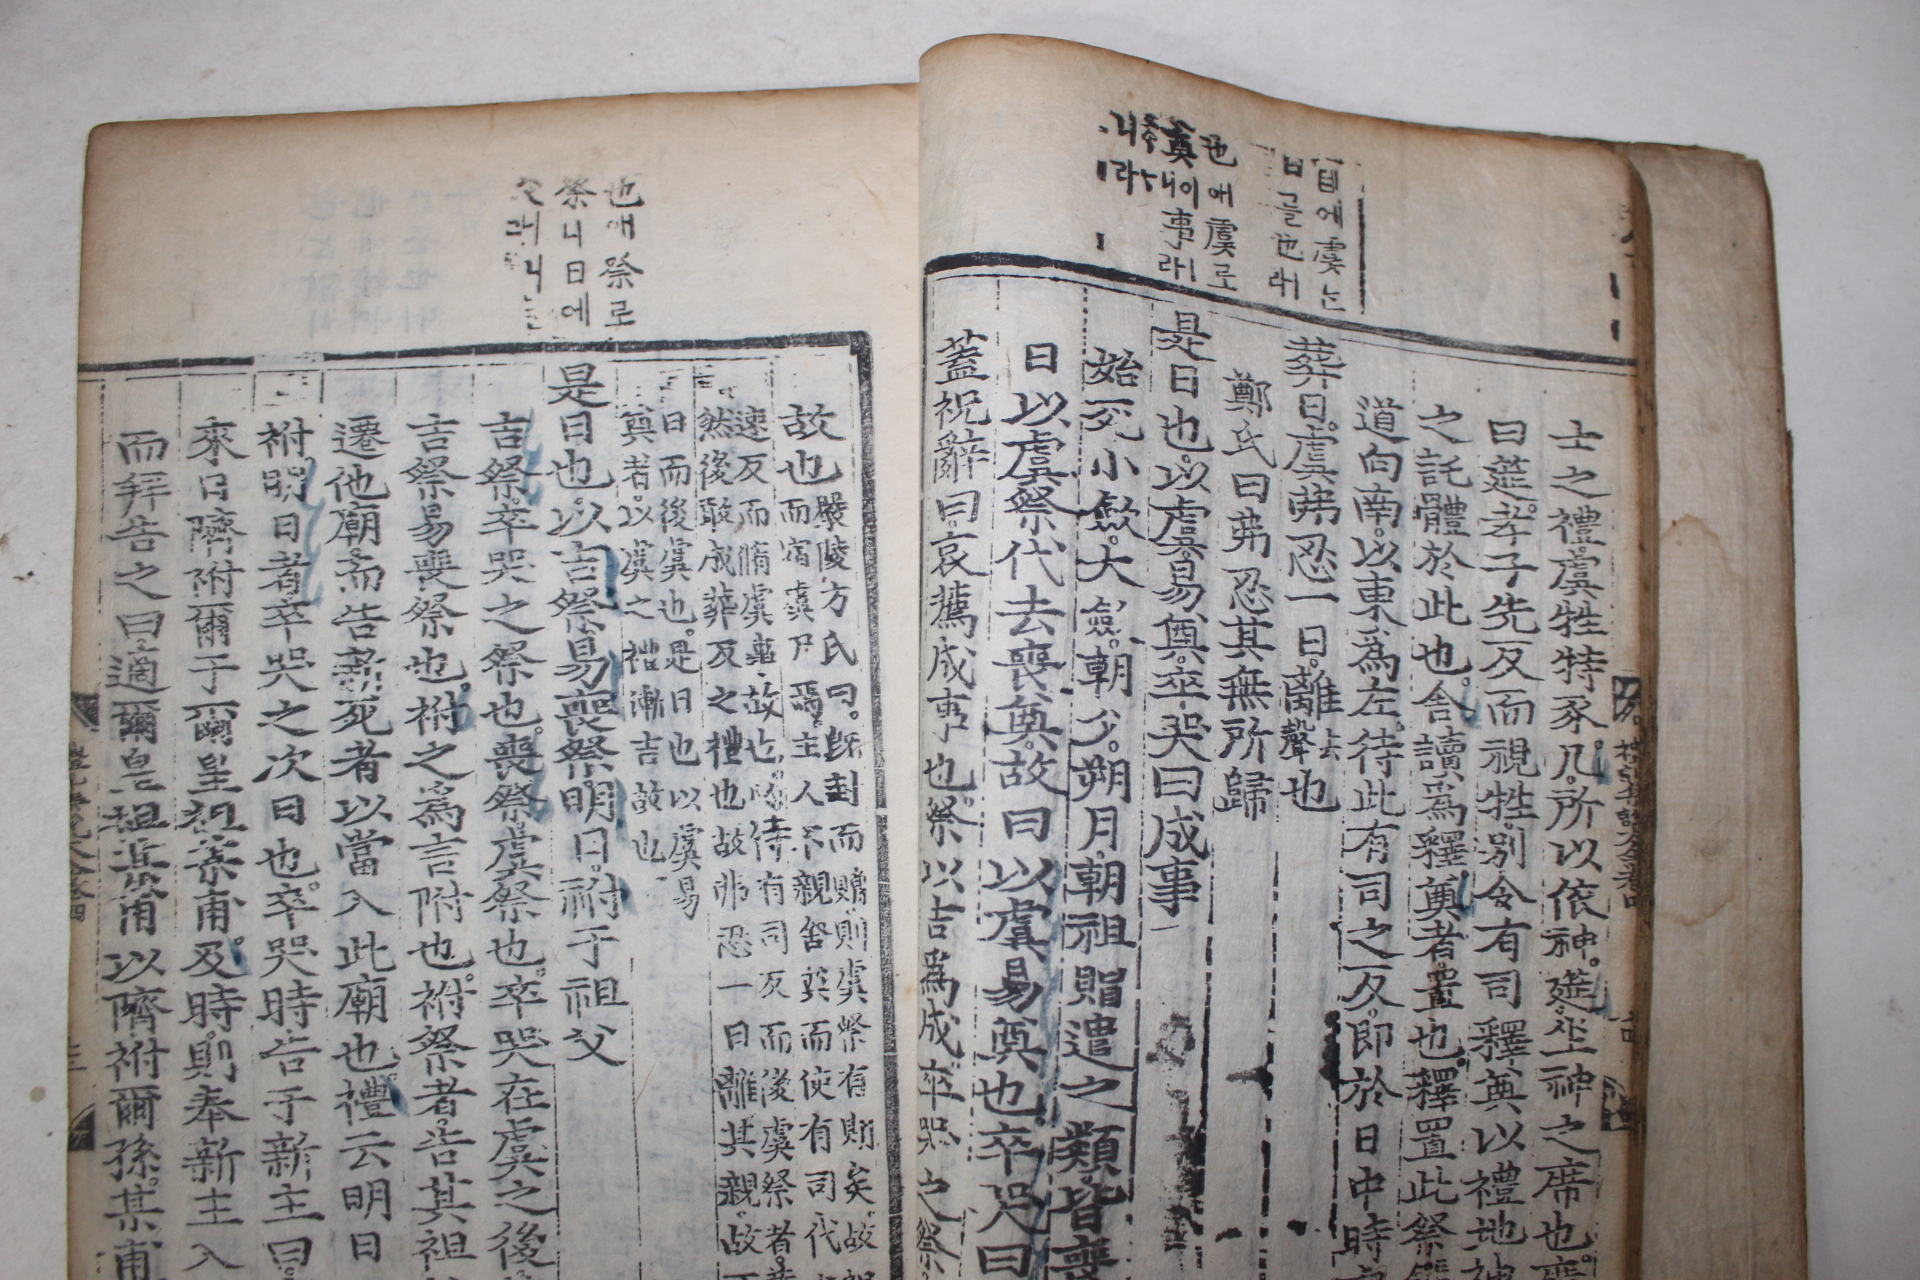 士之禮虞牲特豕几所以依神筵坐神之席也席
曰筵孝子先反而視牲別令有司釋奠以禮地神
之託體於此也舍讀爲釋奠者置也釋置此祭
道向南以東爲左待此有司之反即於日中時
葬日虞弗忍一日離聲去也
鄭氏曰弗忍其無所歸
是日也以虞易奠卒哭曰成事
始死小斂大斂朝夕朔月朝祖賵遣之類皆喪
日以虞祭代去喪奠故曰以虞易奠也卒哭曰
蓋祝辭曰哀薦成事也祭以吉爲成卒哭之祭
也애虞로
奠니이事라
也애祭로
祭니日에
故也嚴陵方氏曰旣封而贈則虞祭有則矣故
而宿虞尸焉主人不親舍奠而使有司代
速反而脩虞事故也必待有司反而後虞祭者
然後敢成葬反之禮也故弗忍一日離其親故
日而後虞也是日也以虞易
奠者以虞之禮漸吉故也
是日也以吉祭易喪祭明日祔于祖父
吉祭卒哭之祭也喪祭虞祭也卒哭在虞之後
吉祭易喪祭也祔之爲言附也祔祭者告其祖
遷他廟而告新死者以當入此廟也禮云明日
祔明日者卒哭之次日也卒哭時告于新主曰
來日隮附爾于爾皇祖某甫及時則奉新主入
而拜告之曰適爾皇祖某甫以隮祔爾孫某甫